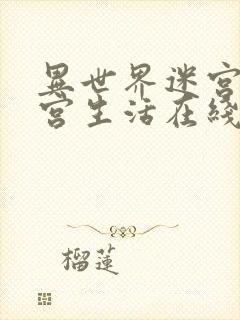 異世界迷宮
宮生活在綫
榴蓮